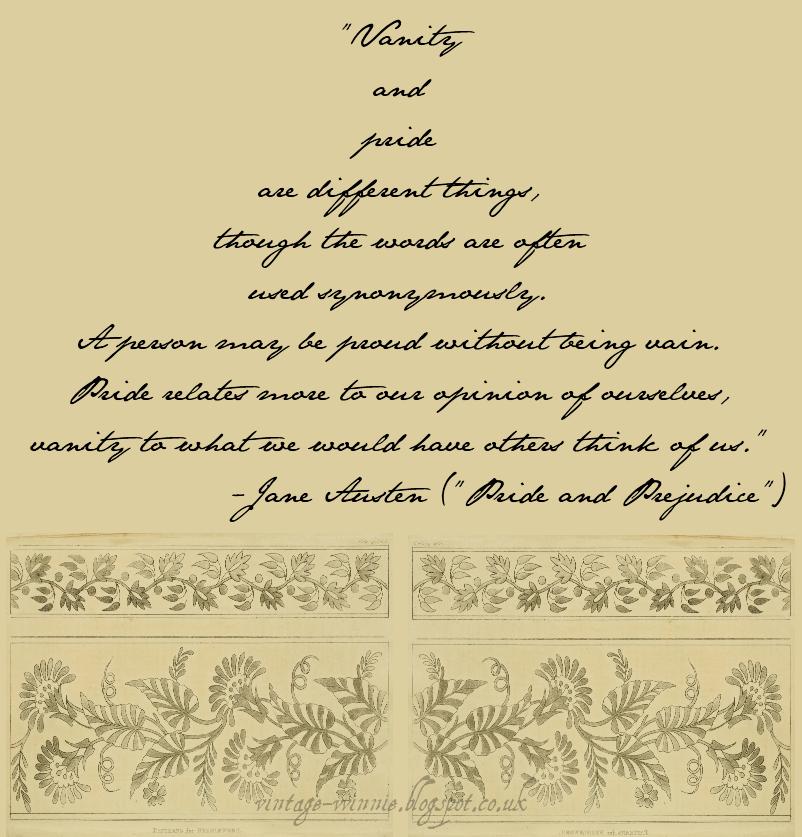 "Vanity
and
pride
are different things,
though the words are often
used synonymously.
A person may be proud without being vain.
Pride relates more to our opinion of ourselves,
vanity to what we would have others think of us."
-Jane Austen ("Pride and Prejudice")
vintage-winnie.blogspot.co.uk